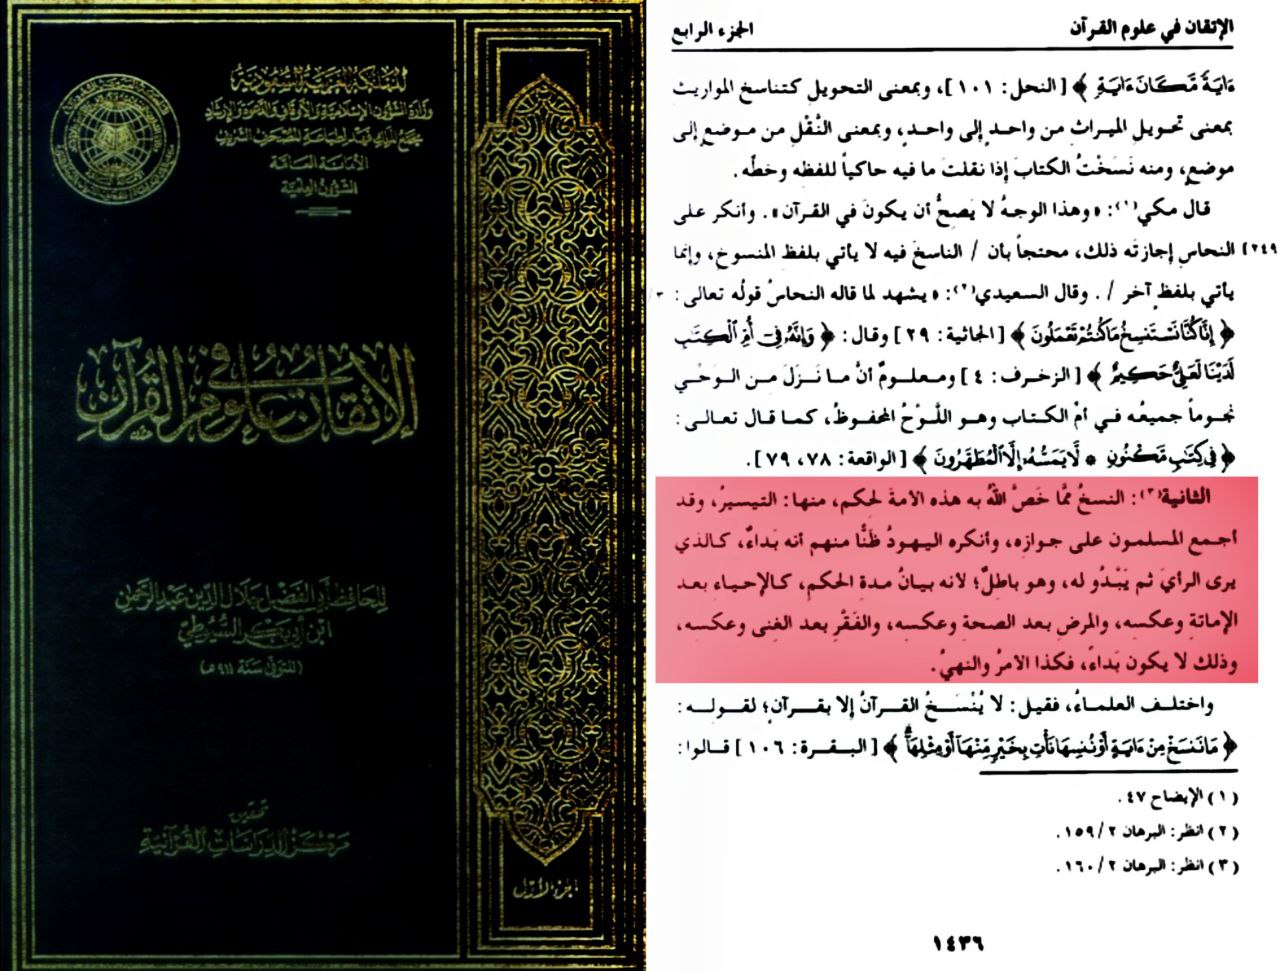 المملكة العربية السعودية
وزارة الشؤون الإسلامية والأوقاف والدعوة والإرشاد
مجمع الملك فهد لطباعة المصحف الشريف
الأمانة العامة
الشؤون العلمية
الإتقان في علوم القرآن
للحافظ أبي الفضل جلال الدين عبد الرحمن
ابن أبي بكر السيوطي
(المتوفى سنة ٩١١ هـ)
تحقيق
مركز الدراسات القرآنية
الجزء الأول
الإتقان في علوم القرآن
الجزء الرابع
ءَايَةً مَّكَانَ ءَايَةٍ ﴾ [النحل: ١٠١]، وبمعنى التحويل كتناسخ المواريث
بمعنى تحويل الميراث من واحدٍ إلى واحد، وبمعنى النَّقْل من موضع إلى
موضع، ومنه نَسَخْتُ الكتابَ إذا نقلتَ ما فيه حاكياً للفظه وخطِّه.
قال مكي(١): «وهذا الوجهُ لا يَصحُّ أن يكونَ في القرآن». وأنكر على
[٢٤٩ النحاسِ إجازتَه ذلك، محتجاً بأن / الناسخَ فيه لا يأتي بلفظ المنسوخ، وإنما
٣/ يأتي بلفظٍ آخر /. وقال السعيدي(٢): «يشهد لما قاله النحاسُ قولُه تعالى:
﴿ إِنَّا كُنَّا نَسْتَنسِخُ مَا كُنتُمْ تَعْمَلُونَ ﴾ [الجاثية: ٢٩] وقال: ﴿ وَإِنَّهُ فِي أُمِّ ٱلْكِتَٰبِ
لَدَيْنَا لَعَلِيٌّ حَكِيمٌ ﴾ [الزخرف: ٤] ومعلومٌ أنَّ ما نَزَلَ من الوَحْي
نجوماً جميعُه في أمِّ الكتاب وهو اللَّوْحُ المحفوظُ، كما قال تعالى:
﴿ فِي كِتَٰبٍ مَّكْنُونٍ * لَّا يَمَسُّهُ إِلَّا ٱلْمُطَهَّرُونَ ﴾ [الواقعة: ٧٨، ٧٩].
الثانية(٣): النسخُ ممَّا خَصَّ اللهُ به هذه الأمةَ لحِكمٍ، منها: التيسيرُ، وقد
أجمع المسلمون على جوازِه، وأنكره اليهودُ ظنًّا منهم أنه بَداءٌ، كالذي
يرى الرأيَ ثم يَبْدُو له، وهو باطلٌ؛ لأنه بيانُ مدةِ الحكم، كالإحياءِ بعد
الإماتةِ وعكسِه، والمرضِ بعد الصحة وعكسِه، والفَقْرِ بعد الغِنى وعكسِه،
وذلك لا يكون بَداءً، فكذا الأمرُ والنهيُ.
واختلف العلماءُ، فقيل: لا يُنْسَخُ القرآنُ إلا بقرآنٍ؛ لقوله:
﴿ مَا نَنسَخْ مِنْ ءَايَةٍ أَوْ نُنسِهَا نَأْتِ بِخَيْرٍ مِّنْهَا أَوْ مِثْلِهَا ﴾ [البقرة: ١٠٦] قالوا:
(١) الإيضاح ٤٧.
(٢) انظر: البرهان ١٥٩/٢.
(٣) انظر: البرهان ١٦٠/٢.
١٤٣٦